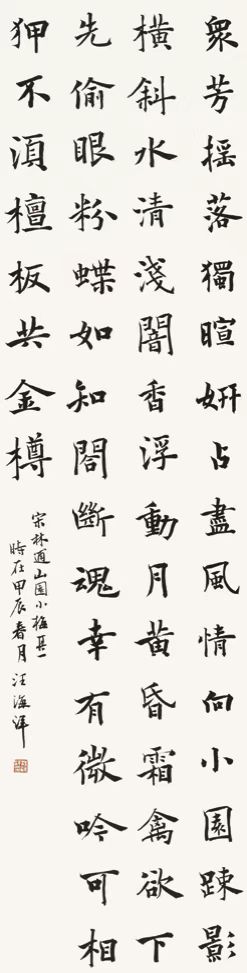 衆芳摇落獨暄妍占盡風情向小園踈影
橫斜水清淺闇香浮動月黄昏霜禽欲下
先偷眼粉蝶如知閤斷魂幸有微吟可相
狎不湏檀板共金樽
宋林逋山園小梅其一
時在甲辰春月汪海洋